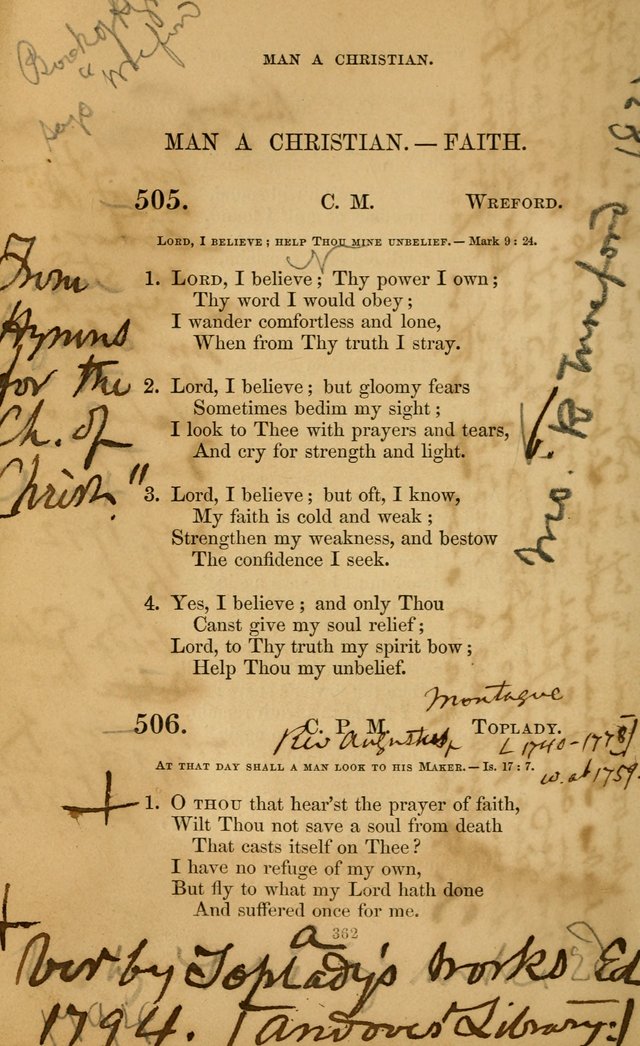 Book of
says Wreford
MAN A CHRISTIAN.
MAN A CHRISTIAN. — FAITH.
505. C. M. WREFORD.
LORD, I BELIEVE; HELP THOU MINE UNBELIEF. — Mark 9: 24.
From
Hymns
for the
Ch. of
Christ."
1. LORD, I believe; Thy power I own;
Thy word I would obey;
I wander comfortless and lone,
When from Thy truth I stray.
2. Lord, I believe; but gloomy fears
Sometimes bedim my sight;
I look to Thee with prayers and tears,
And cry for strength and light.
3. Lord, I believe; but oft, I know,
My faith is cold and weak;
Strengthen my weakness, and bestow
The confidence I seek.
4. Yes, I believe; and only Thou
Canst give my soul relief;
Lord, to Thy truth my spirit bow;
Help Thou my unbelief.
Montague
506. C. P. M. TOPLADY.
Rev Augustus [1740-1778]
AT THAT DAY SHALL A MAN LOOK TO HIS MAKER. — Is. 17: 7.
w. ab 1759.
1. O THOU that hear'st the prayer of faith,
Wilt Thou not save a soul from death
That casts itself on Thee?
I have no refuge of my own,
But fly to what my Lord hath done
And suffered once for me.
362
a
Ver by Toplady's Works Ed
1794. [Andover Library:]